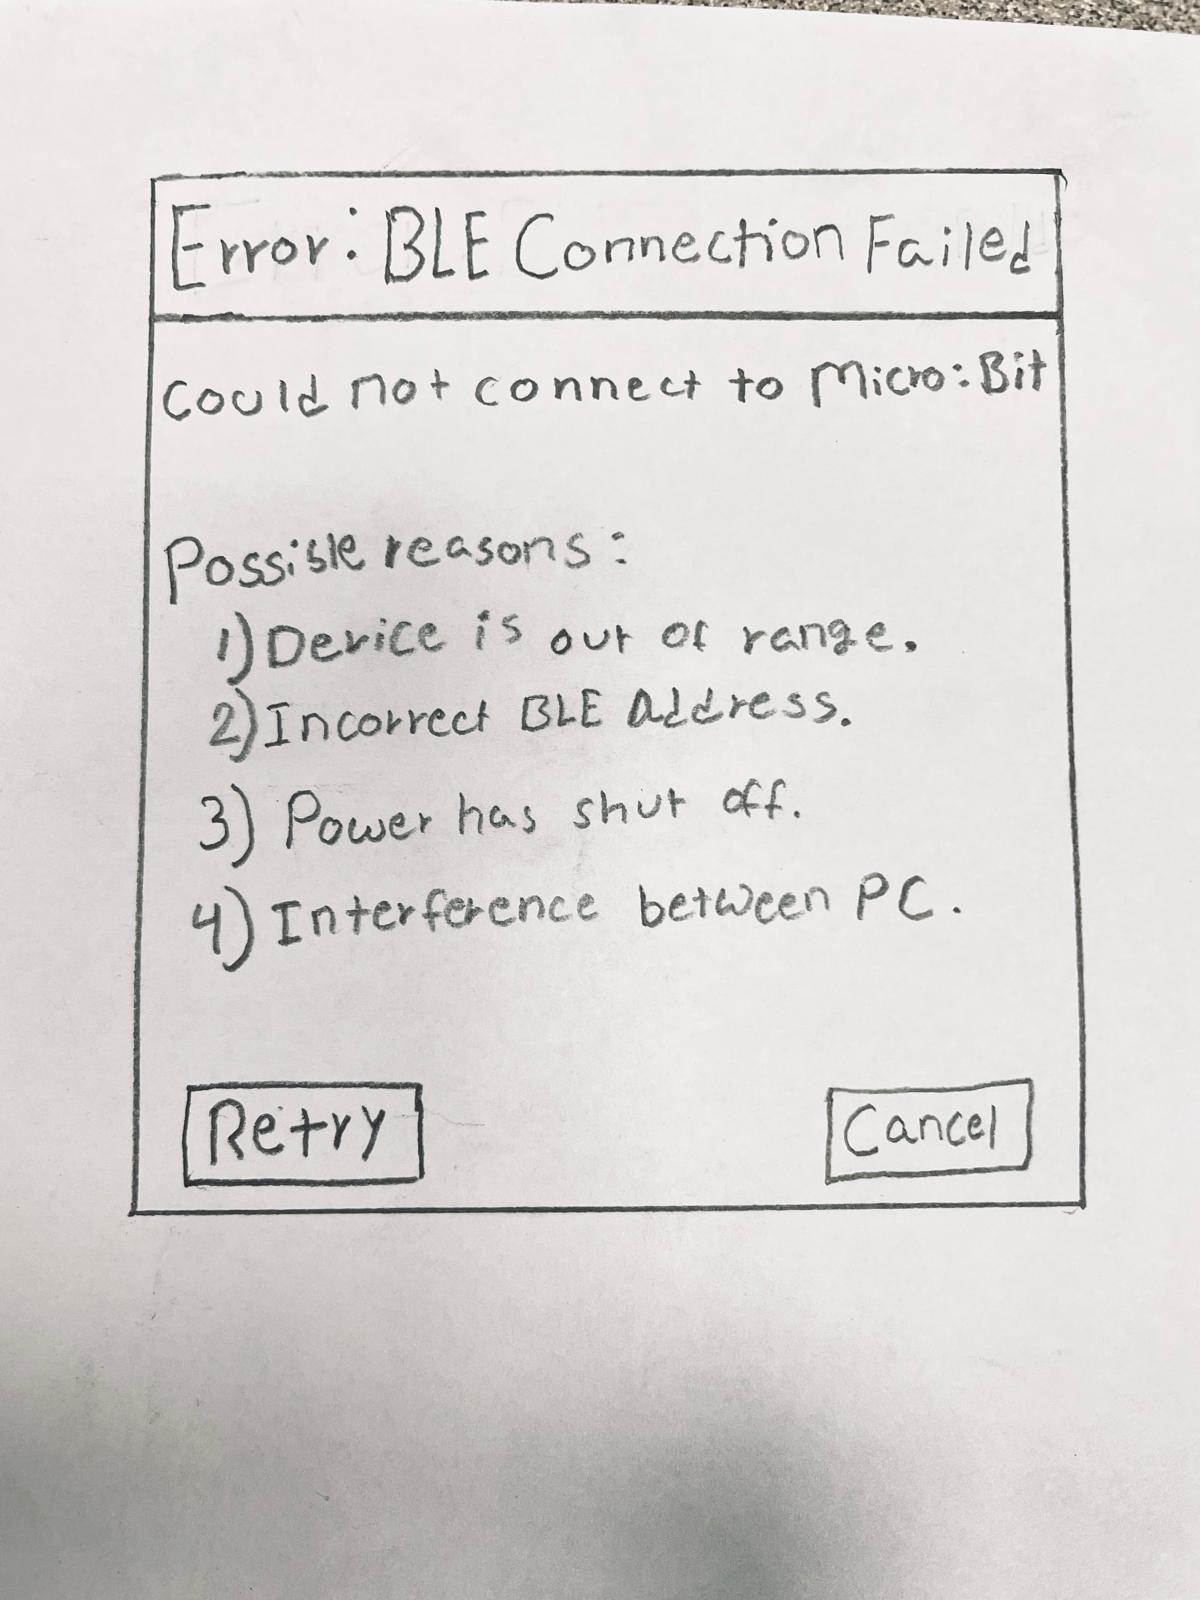 Error: BLE Connection Failed
Could not connect to Micro:Bit
Possible reasons:
1) Device is out of range.
2) Incorrect BLE Address.
3) Power has shut off.
4) Interference between PC.
Retry
Cancel